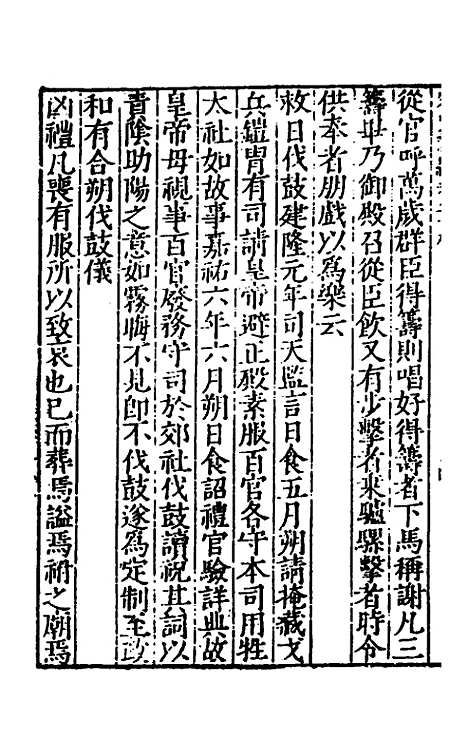 從官呼萬歲群臣得籌則唱好得籌者下馬稱謝凡三
籌畢乃御殿召從臣飲又有步擊者乘驢騾擊者時令
供奉者朋戲以為樂云
救日伐鼓建隆元年司天監言日食五月朔請掩藏戈
兵鎧冑有司請皇帝避正殿素服百官各守本司用牲
太社如故事嘉祐六年六月朔日食詔禮官驗詳典故
皇帝毋視事百官廢務守司於郊社伐鼓讀祝其詞以
責陰助陽之意如霧晦不見即不伐鼓遂為定制至政
和有合朔伐鼓儀
凶禮凡喪有服所以致哀也已而葬焉謚焉祔之廟焉